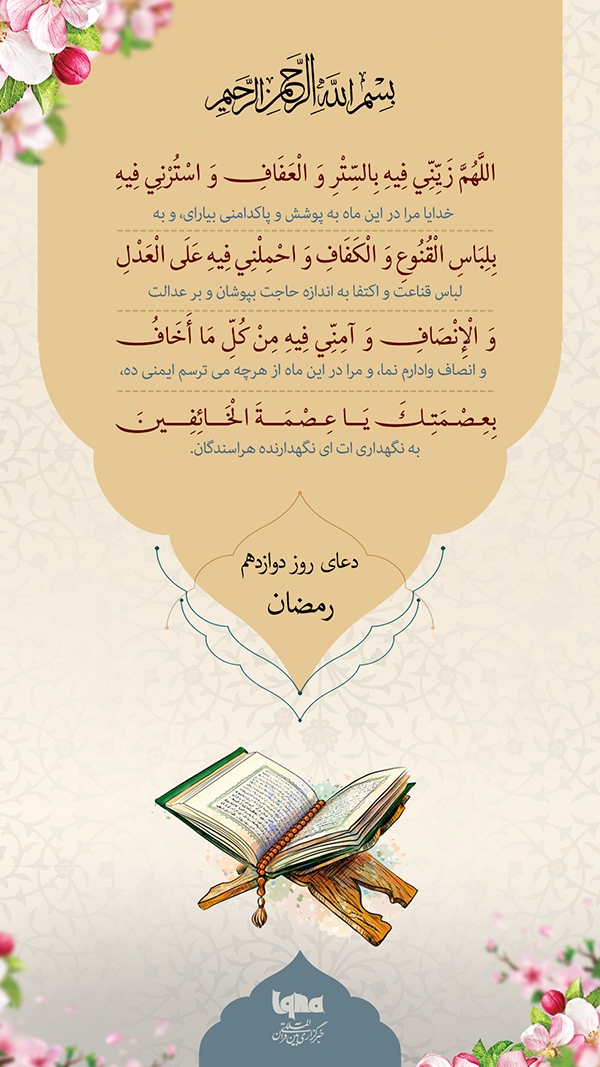 بِسْمِ اللَّهِ الرَّحْمَنِ الرَّحِيمِ
اللَّهُمَّ زَيِّنِّي فِيهِ بِالسِّتْرِ وَ الْعَفَافِ وَ اسْتُرْنِي فِيهِ
خدایا مرا در این ماه به پوشش و پاکدامنی بیارای، و به
بِلِبَاسِ الْقُنُوعِ وَ الْكَفَافِ وَ احْمِلْنِي فِيهِ عَلَى الْعَدْلِ
لباس قناعت و اکتفا به اندازه حاجت بپوشان و بر عدالت
وَ الْإِنْصَافِ وَ آمِنِّي فِيهِ مِنْ كُلِّ مَا أَخَافُ
و انصاف وادارم نما، و مرا در این ماه از هرچه می ترسم ایمنی ده،
بِعِصْمَتِكَ يَا عِصْمَةَ الْخَائِفِينَ
به نگهداری ات ای نگهدارنده هراسندگان.
دعای روز دوازدهم
رمضان
iqna
خبرگزاری بین المللی قرآن